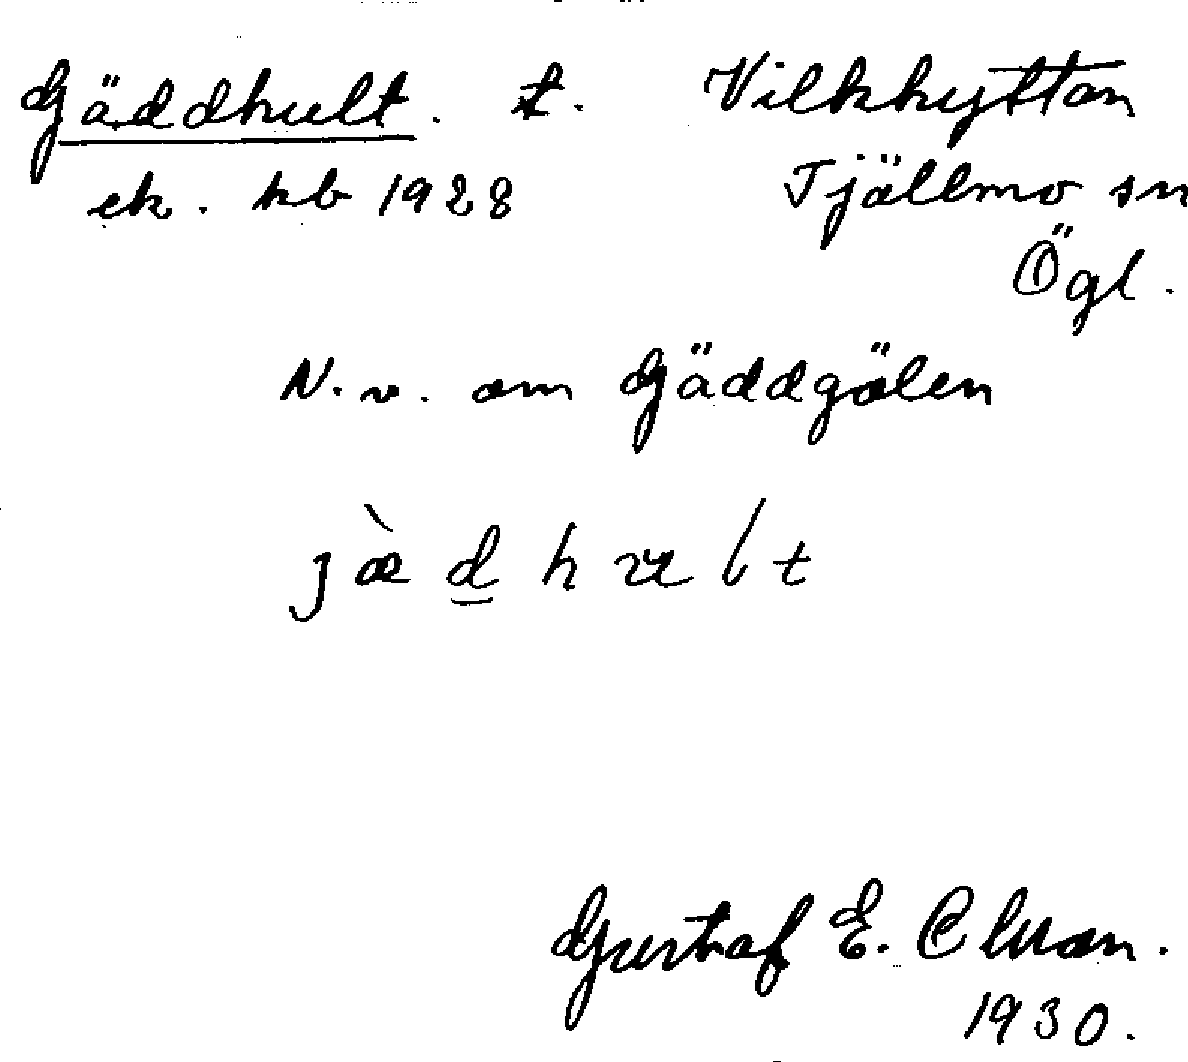 Gäddhult. t. Vilkhyttan
ek. kb 1928 Tjällmo sn
Ögl.
N.v. om Gäddgölen
jæ̀d̲hult
Gustaf E.
1930.